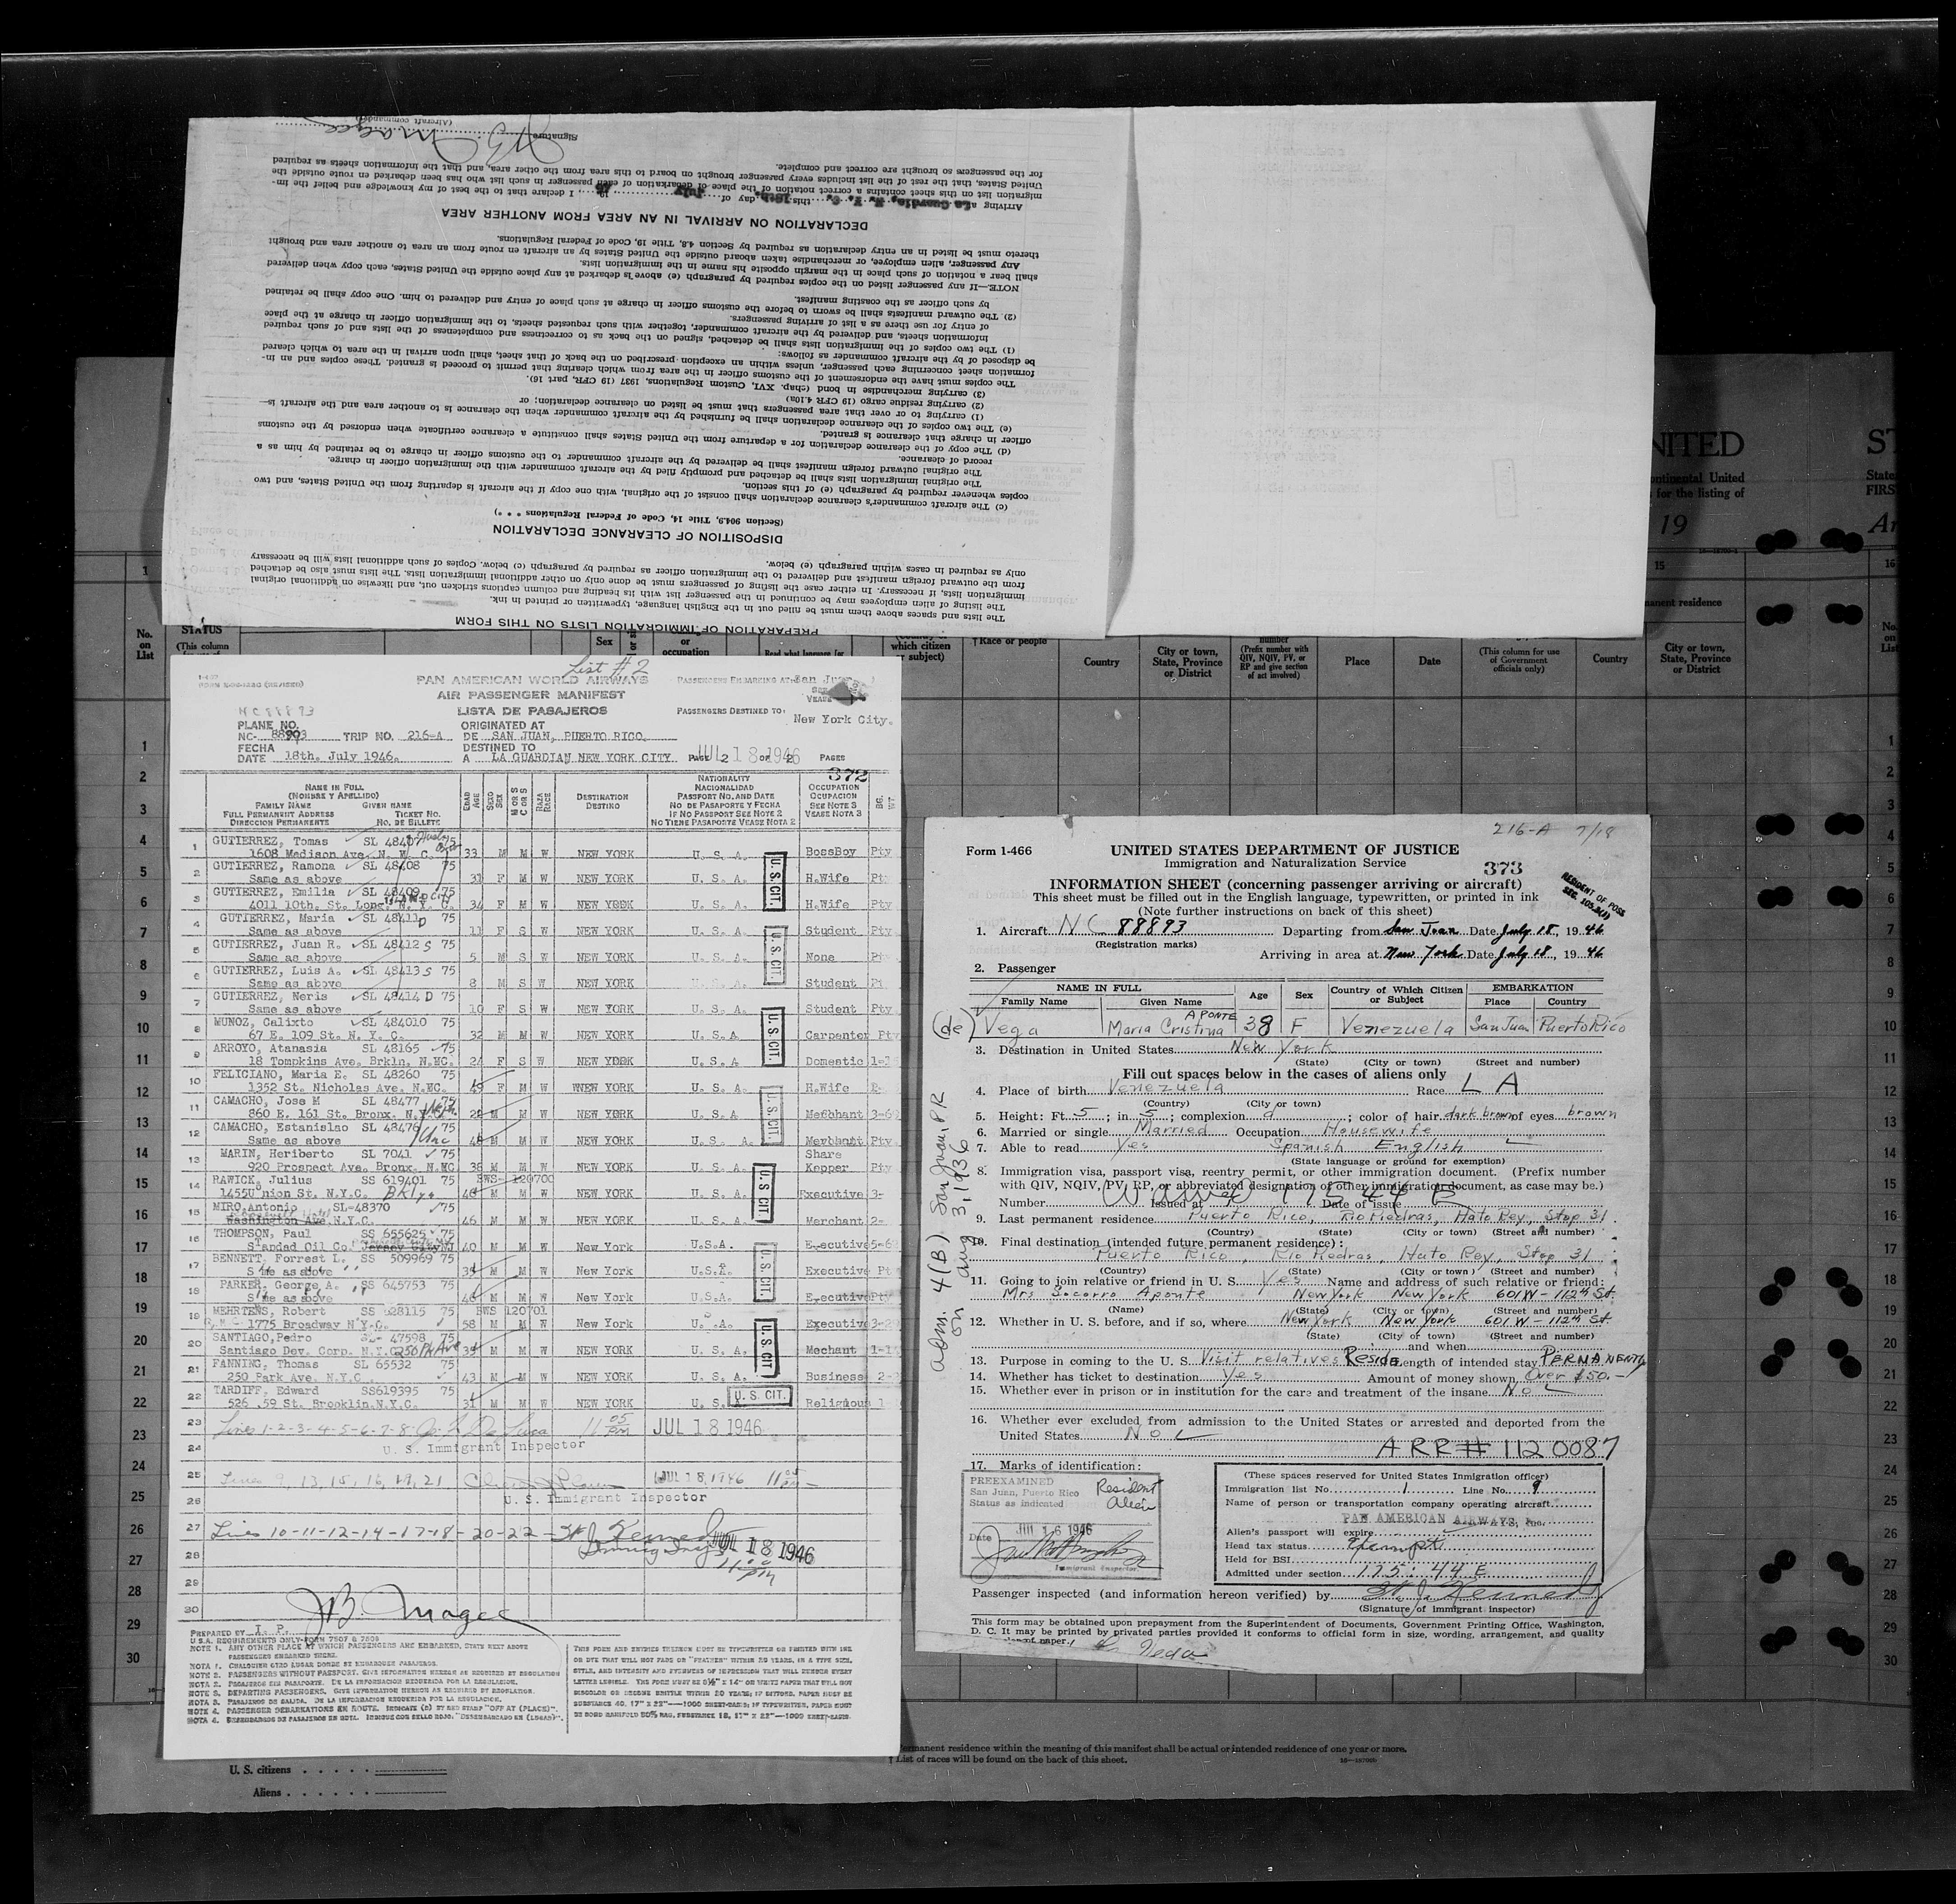 PREPARATION OF IMMIGRATION LISTS ON THIS FORM
The lists and spaces above them must be filled out in the English language, typewritten or printed in ink.
The listing of alien employees may be continued in the passenger list with its heading and column captions stricken out, and likewise on additional
immigration lists, if necessary. In either case the listing of passengers must be done only on other additional immigration lists. The lists must also be detached
from the outward foreign manifest and delivered to the immigration officer as required by paragraph (c) below. Copies of such additional lists will be necessary
only as required in cases within paragraph (e) below.
DISPOSITION OF CLEARANCE DECLARATION
(Section 904.9, Title 14, Code of Federal Regulations * * *)
(c) The aircraft commander's clearance declaration shall consist of the original, with one copy if the aircraft is departing from the United States, and two
copies whenever required by paragraph (e) of this section.
The original immigration lists shall be detached and promptly filed by the aircraft commander with the immigration officer in charge.
The original outward foreign manifest shall be delivered by the aircraft commander to the customs officer in charge to be retained by him as a
record of clearance.
(d) The copy of the clearance declaration for a departure from the United States shall constitute a clearance certificate when endorsed by the customs
officer in charge that clearance is granted.
(e) The two copies of the clearance declaration shall be furnished by the aircraft commander when the clearance is to another area and the aircraft is—
(1) carrying to or over that area passengers that must be listed on clearance declaration; or
(2) carrying residue cargo (19 CFR 4.10a)
(3) carrying merchandise in bond (chap. XVI, Custom Regulations, 1937 (19 CFR, part 16).
The copies must have the endorsement of the customs officer in the area from which clearing that permit to proceed is granted. These copies and an in-
formation sheet concerning each passenger, unless within an exception prescribed on the back of that sheet, shall upon arrival in the area to which cleared
be disposed of by the aircraft commander as follows:
(1) The two copies of the immigration lists shall be detached, signed on the back as to correctness and completeness of the lists and of such required
information sheets, and delivered by the aircraft commander, together with such requested sheets, to the immigration officer in charge at the place
of entry for use there as a list of arriving passengers.
(2) The outward manifests shall be sworn to before the customs officer in charge at such place of entry and delivered to him. One copy shall be retained
by such officer as the coasting manifest.
NOTE.—If any passenger listed on the copies required by paragraph (e) above is debarked at any place outside the United States, each copy when delivered
shall bear a notation of such place in the margin opposite his name in the immigration lists.
Any passenger, alien employee, or merchandise taken aboard outside the United States by an aircraft en route from an area to another area and brought
thereto must be listed in an entry declaration as required by Section 4.8, Title 19, Code of Federal Regulations.
DECLARATION ON ARRIVAL IN AN AREA FROM ANOTHER AREA
Arriving at La Guardia, N. Y. C. this 18th. day of July 19 I declare that to the best of my knowledge and belief the im-
migration list on this sheet contains a correct notation of the place of debarkation of each passenger in such list who has been debarked en route outside the
United States, that the rest of the list includes every passenger brought on board to this area from the other area, and that the information sheets as required
for the passengers so brought are correct and complete.
Signature JB Magee
(Aircraft commander)
NITED
ontinental United
for the listing of
19
ST
State
FIRS
Ar
1
15
16
manent residence
No.
on
List
STATUS
(This column
Sex
or
occupation
Read what language [or
(Country of
which citizen
or subject)
† Race or people
Country
City or town,
State, Province
or District
number
(Prefix number with
QIV, NQIV, PV, or
RP and give section
of act involved)
Place
Date
(This column for use
of Government
officials only)
Country
City or town,
State, Province
or District
No.
on
List
List #2
PAN AMERICAN WORLD AIRWAYS
AIR PASSENGER MANIFEST
LISTA DE PASAJEROS
PASSENGERS EMBARKING AT San Juan
PASSENGERS DESTINED TO: New York City.
NC88893
PLANE NO.
NC- 88903 TRIP NO. 216-A
ORIGINATED AT
DE SAN JUAN, PUERTO RICO.
FECHA
DATE 18th. July 1946.
DESTINED TO
A LA GUARDIAN NEW YORK CITY
PAGE 2 OF 2 PAGES
JUL 18 1946
372
NAME IN FULL
(NOMBRE Y APELLIDO)
FAMILY NAME GIVEN NAME
FULL PERMANENT ADDRESS TICKET NO.
DIRECCION PERMANENTE NO. DE BILLETE
EDAD AGE
SEXO SEX
M OR S
C OR S
RAZA RACE
DESTINATION
DESTINO
NATIONALITY
NACIONALIDAD
PASSPORT NO. AND DATE
NO DE PASAPORTE Y FECHA
IF NO PASSPORT SEE NOTE 2
NO TIENE PASAPORTE VEASE NOTA 2
OCCUPATION
OCUPACION
SEE NOTE 3
VEASE NOTA 3
1 GUTIERREZ, Tomas SL 48407 75
1608 Madison Ave. N. Y. C. 33 M M W NEW YORK U. S. A. BossBoy Pty
2 GUTIERREZ, Ramona SL 48408 75
Same as above 31 F M W NEW YORK U. S. A. H.Wife Pt
3 GUTIERREZ, Emilia SL 48409 75
4011 10th. St. Long. N. Y. C. 34 F M W NEW YORK U. S. A. H.Wife Pty
4 GUTIERREZ, Maria SL 48411 D 75
Same as above 11 F S W NEW YORK U. S. A. Student Pty
5 GUTIERREZ, Juan R. SL 48412 S 75
Same as above 5 M S W NEW YORK U. S. A. None Pty
6 GUTIERREZ, Luis A. SL 48413 S 75
Same as above 8 M S W NEW YORK U. S. A. Student
7 GUTIERREZ, Neris SL 48414 D 75
Same as above 10 F S W NEW YORK U. S. A. Student Pty
8 MUNOZ, Calixto SL 484010 75
67 E. 109 St. N. Y. C. 32 M M W NEW YORK U. S.A Carpenter Pty
9 ARROYO, Atanasia SL 48165 75
18 Tompkins Ave. Brkln. N.YC. 24 F S W NEW YORK U. S. A Domestic
10 FELICIANO, Maria E. SL 48260 75
1352 St. Nicholas Ave. N.YC. 45 F M W NEW YORK U. S. A. H.Wife
11 CAMACHO, Jose M SL 48477 75
860 E. 161 St. Bronx. N.Y.C. M M W NEW YORK U. S. A Merbhant
12 CAMACHO, Estanislao SL 48476 75
Same as above 48 M M W NEW YORK U. S. A. Merbhant Pty
13 MARIN, Heriberto SL 7041 75
920 Prospect Ave. Bronx. N.YC. 38 M M W NEW YORK U. S. A. Share Kepper Pty
14 RAWICK, Julius SS 619401 75 BWS- 120700
1455Union St. N.Y.C. Bklyn 46 M M W NEW YORK U. S. A. Executive 3-
15 MIRO,Antonio SL-48370 75
Washington Ave N.Y.C. 46 M M W NEW YORK U. S. A. Merchant 2-
16 THOMPSON, Paul SS 655625 75
Standad Oil Co. Jersey City NJ 40 M M W New York U.S.A. Executive 5-6
17 BENNETT, Forrest L. SS 509969 75
Same as above 39 M M W New York U.S.A. Executive Pt
18 PARKER, George A. SS 645753 75
Same as above 46 M M W New York U.S.A. Executive Pty
19 MEHRTENS, Robert SS 628115 75 BWS 120701
1775 Broadway N.Y.C. 58 M M W New York U.S.A. Executive
20 SANTIAGO,Pedro SL- 47598 75
Santiago Dev. Corp. N.Y.C 250 Pk Ave 39 M M W NEW YORK U. S. A. Mechant
21 FANNING, Thomas SL 65532 75
250 Park Ave. N.Y.C. 43 M M W NEW YORK U. S. A. Business
22 TARDIFF, Edward SS619395 75
526 59 St. Brooklin.N.Y.C. 31 M M W NEW YORK U. S. A. Religious
U. S. CIT.
U. S. CIT.
U. S. CIT.
U. S. CIT.
U. S. CIT
U. S. CIT.
U. S. CIT
U. S. CIT.
23 Lines 1-2-3-4-5-6-7-8 11 05 PM JUL 18 1946
24 U. S. Immigrant Inspector
25 Lines 9, 13, 15, 16, 19, 21 JUL 18 1946 11 05
26 U. S. Immigrant Inspector
27 Lines 10-11-12-14-17-18-20-22 St J Kennedy JUL 18 1946
28
29
30 JB Magee
PREPARED BY I. P.
U.S.A. REQUIREMENTS ONLY-FORM 7507 & 7509
NOTE 1. ANY OTHER PLACE AT WHICH PASSENGERS ARE EMBARKED, STATE NEXT ABOVE
PASSENGERS EMBARKED THERE.
NOTA 1. CUALQUIER OTRO LUGAR DONDE SE EMBARQUEN PASAJEROS.
NOTE 2. PASSENGERS WITHOUT PASSPORT. GIVE INFORMATION HEREON AS REQUIRED BY REGULATION
NOTA 2. PASAJEROS SIN PASAPORTE. DE LA INFORMACION REQUERIDA POR LA REGULACION.
NOTE 3. DEPARTING PASSENGERS. GIVE INFORMATION HEREON AS REQUIRED BY REGULATION.
NOTA 3. PASAJEROS DE SALIDA. DE LA INFORMACION REQUERIDA POR LA REGULACION.
NOTE 4. PASSENGER DEBARKATIONS EN ROUTE. INDICATE (S) BY RED STAMP "OFF AT (PLACE)".
NOTA 4. DESEMBARCOS DE PASAJEROS EN RUTA. INDIQUE CON SELLO ROJO. "DESEMBARCADO EN (LUGAR)".
THIS FORM AND ENTRIES THEREON MUST BE TYPEWRITTEN OR PRINTED WITH INK
OR DYE THAT WILL NOT FADE OR "FEATHER" WITHIN 20 YEARS, IN A TYPE SIZE,
STYLE, AND INTENSITY AND EVENNESS OF IMPRESSION THAT WILL RENDER EVERY
LETTER LEGIBLE. THE FORM MUST BE 8½" X 14" ON WHITE PAPER THAT WILL NOT
DISCOLOR OR BECOME BRITTLE WITHIN 20 YEARS; IF DITTOED, PAPER MUST BE
SUBSTANCE 40, 17" X 22"—1000 SHEET-BASIS; IF TYPEWRITTEN, PAPER MUST
BE BOND MANIFOLD 50% RAG, SUBSTANCE 18, 17" X 22"—1000 SHEET-BASIS.
216-A 7/18
Form 1-466
UNITED STATES DEPARTMENT OF JUSTICE
Immigration and Naturalization Service
373
INFORMATION SHEET (concerning passenger arriving or aircraft)
This sheet must be filled out in the English language, typewritten, or printed in ink
(Note further instructions on back of this sheet)
RESIDENT OF POSS
SEC. 105.3(1)
1. Aircraft NC 88893 Departing from San Juan Date July 18, 1946
(Registration marks)
Arriving in area at New York Date July 18, 1946
2. Passenger
NAME IN FULL Age Sex Country of Which Citizen or Subject EMBARKATION
Family Name Given Name Place Country
Vega Maria Cristina APONTE 38 F Venezuela San Juan Puerto Rico
3. Destination in United States New York
(State) (City or town) (Street and number)
Fill out spaces below in the cases of aliens only
4. Place of birth Venezuela Race L A
(Country) (City or town)
5. Height: Ft. 5; in 5; complexion d; color of hair dark brown of eyes brown
6. Married or single Married Occupation Housewife
7. Able to read Yes Spanish English
(State language or ground for exemption)
8. Immigration visa, passport visa, reentry permit, or other immigration document. (Prefix number
with QIV, NQIV, PV, RP, or abbreviated designation of other immigration document, as case may be.)
Number Waived 175 44 E Issued at Date of issue
9. Last permanent residence Puerto Rico, Rio Piedras, Hato Rey, Stop 31.
(Country) (State) (City or town) (Street and number)
10. Final destination (intended future permanent residence):
Puerto Rico, Rio Piedras, Hato Rey, Stop 31
(Country) (State) (City or town) (Street and number)
11. Going to join relative or friend in U. S. Yes Name and address of such relative or friend:
Mrs Socorro Aponte New York New York 601 W - 112th St.
(Name) (State) (City or town) (Street and number)
12. Whether in U. S. before, and if so, where New York New York 601 W - 112th St
(State) (City or town) (Street and number)
and when
13. Purpose in coming to the U. S. Visit relatives Reside Length of intended stay PERMANENTLY
14. Whether has ticket to destination Yes Amount of money shown Over $50.-
15. Whether ever in prison or in institution for the care and treatment of the insane No
16. Whether ever excluded from admission to the United States or arrested and deported from the
United States No
ARR# 1120087
17. Marks of identification:
PREEXAMINED
San Juan, Puerto Rico
Status as indicated
Resident Alien
Date JUL 16 1946
Immigrant Inspector.
(These spaces reserved for United States Inmigration officer)
Immigration list No. 1 Line No. 9
Name of person or transportation company operating aircraft
PAN AMERICAN AIRWAYS, Inc.
Alien's passport will expire
Head tax status Exempt
Held for BSI
Admitted under section 175.44 E
Passenger inspected (and information hereon verified) by St. J. Kennedy
(Signature of immigrant inspector)
This form may be obtained upon prepayment from the Superintendent of Documents, Government Printing Office, Washington,
D. C. It may be printed by privated parties provided it conforms to official form in size, wording, arrangement, and quality
of paper.
Vega
adm. 4(B) San Juan, PR
on Aug 3, 1936
1
2
3
4
5
6
7
8
9
10
11
12
13
14
15
16
17
18
19
20
21
22
23
24
25
26
27
28
29
30
permanent residence within the meaning of this manifest shall be actual or intended residence of one year or more.
† List of races will be found on the back of this sheet.
U. S. citizens
Aliens